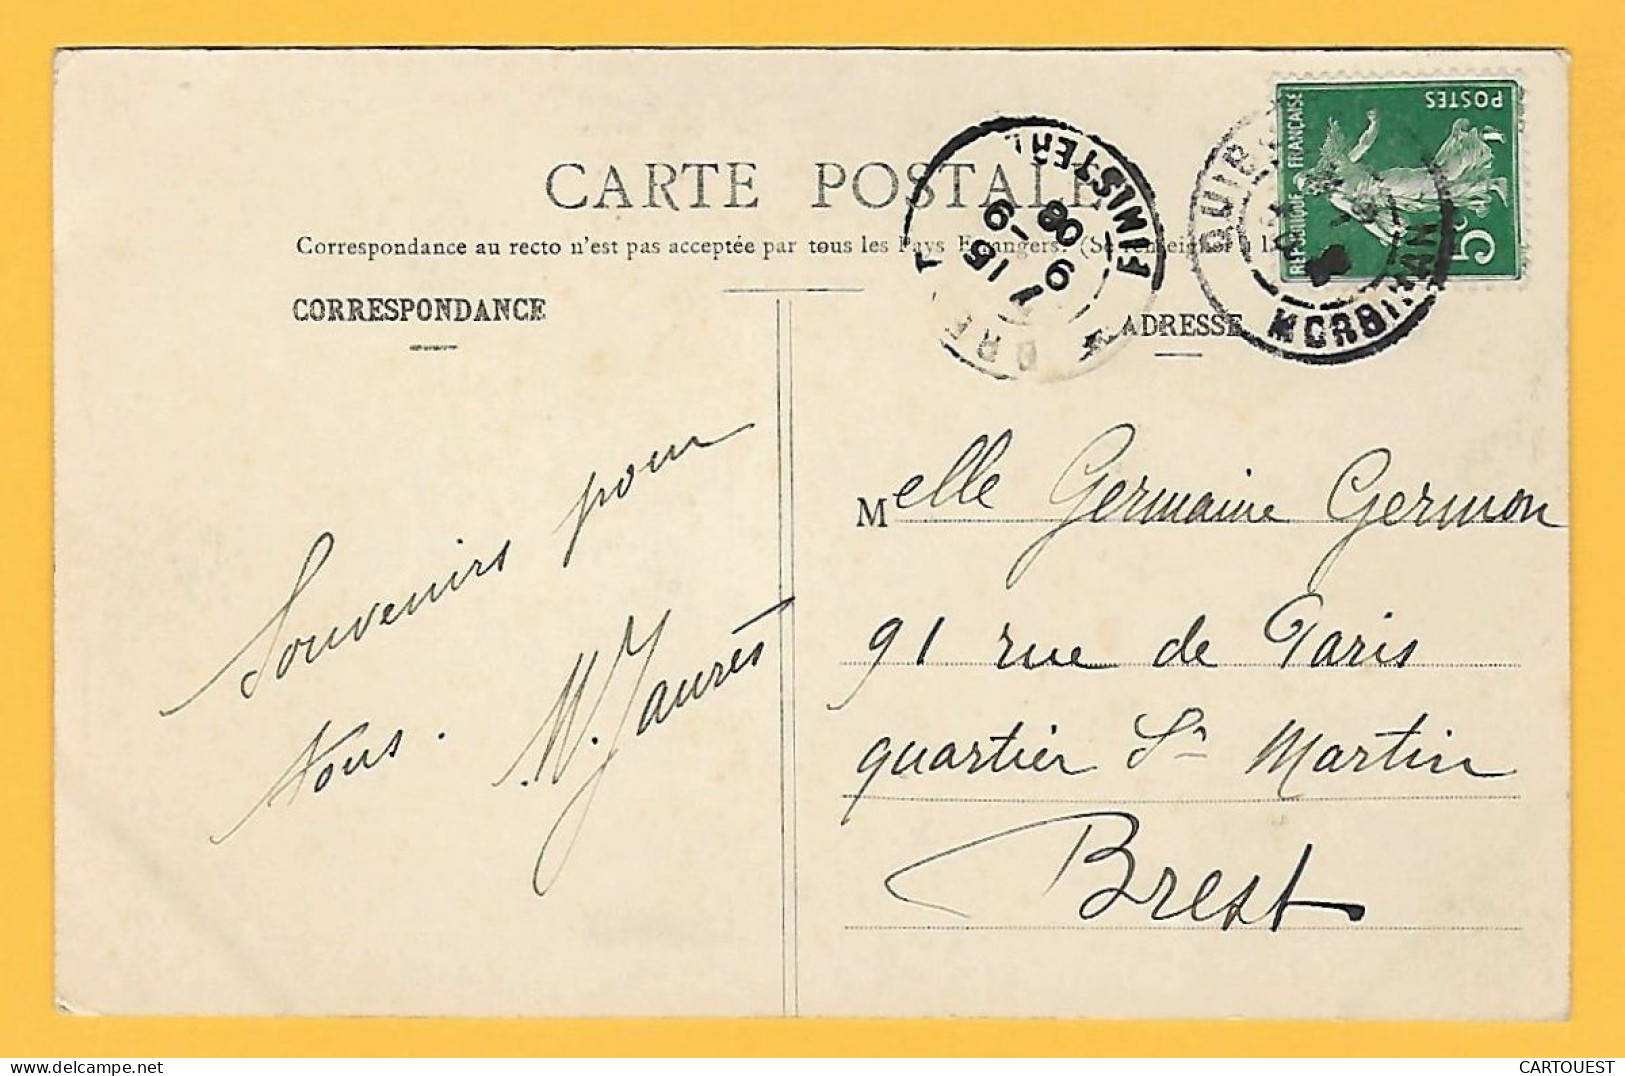 CARTE POSTALE
Correspondance au recto n'est pas acceptée par tous les Pays Etrangers. (Se renseigner à la
CORRESPONDANCE
ADRESSE
FINISTERE
7 15
9 -9
08
QUIB
MORBIHAN
REPUBLIQUE FRANÇAISE
POSTES
5c
Souvenirs pour
tous.
W. Jaurès
Melle Germaine Germon
91 rue de Paris
quartier St Martin
Brest
www.delcampe.net
CARTOUEST